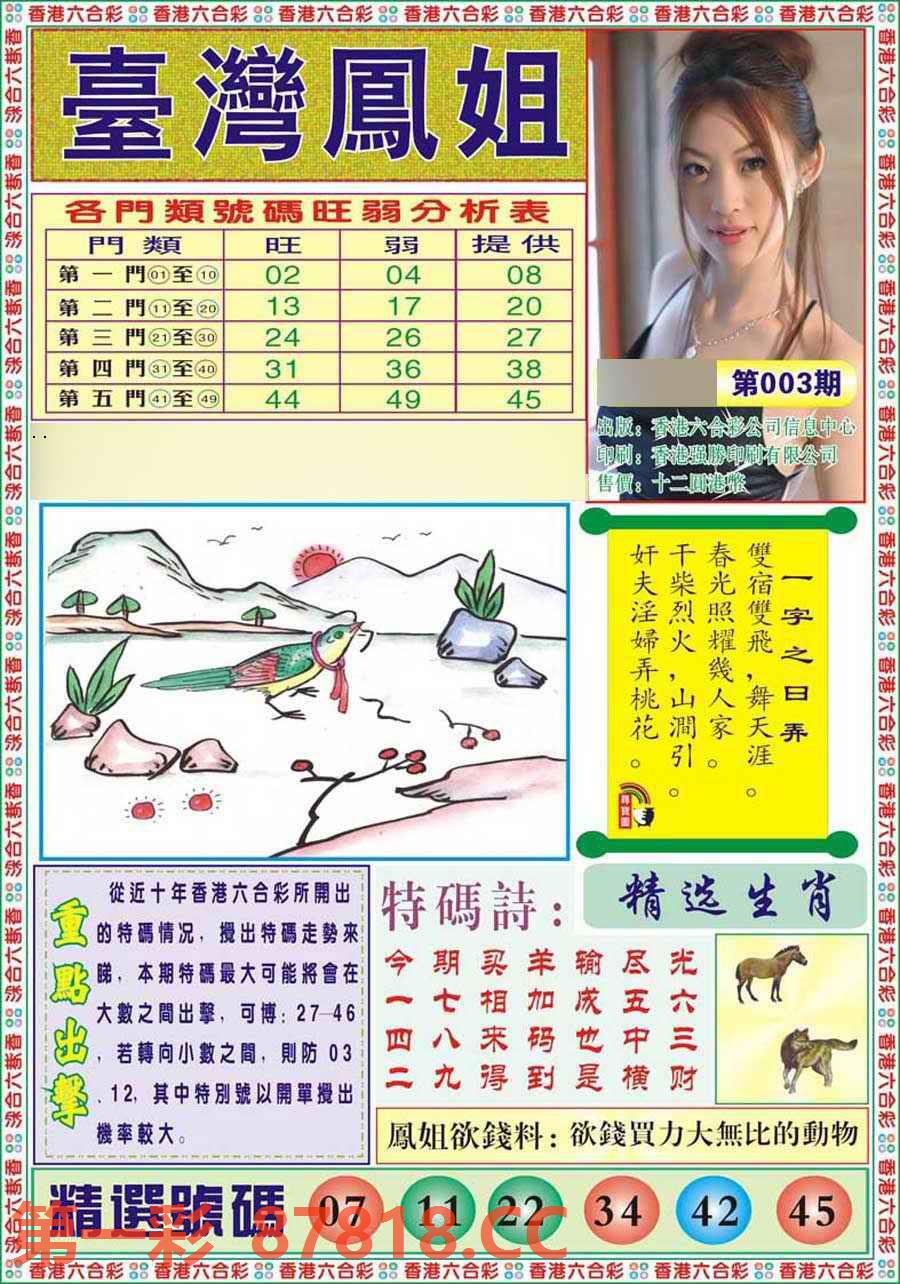 香港六合彩 香港六合彩 香港六合彩 香港六合彩 香港六合彩 香港六合彩 香港六合彩
臺灣鳳姐
各門類號碼旺弱分析表
門類 旺 弱 提供
第一門01至10 02 04 08
第二門11至20 13 17 20
第三門21至30 24 26 27
第四門31至40 31 36 38
第五門41至49 44 49 45
第003期
出版：香港六合彩公司信息中心
印刷：香港强勝印刷有限公司
售價：十二圓港幣
一字之曰弄
雙宿雙飛，舞天涯。
春光照耀幾人家。
干柴烈火，山澗引。
奸夫淫婦弄桃花。
尋寶圖
重點出擊
從近十年香港六合彩所開出
的特碼情况，攪出特碼走勢來
睇，本期特碼最大可能將會在
大數之間出擊，可博：27—46
，若轉向小數之間，則防 03
、12，其中特別號以開單攪出
機率較大。
特碼詩：
今期买羊输尽光
一七相加成五六
四八来码也中三
二九得到是横财
精选生肖
鳳姐欲錢料：欲錢買力大無比的動物
精選號碼 07 11 22 34 42 45
第一彩 87818.CC
香港六合彩 香港六合彩 香港六合彩 香港六合彩 香港六合彩 香港六合彩 香港六合彩